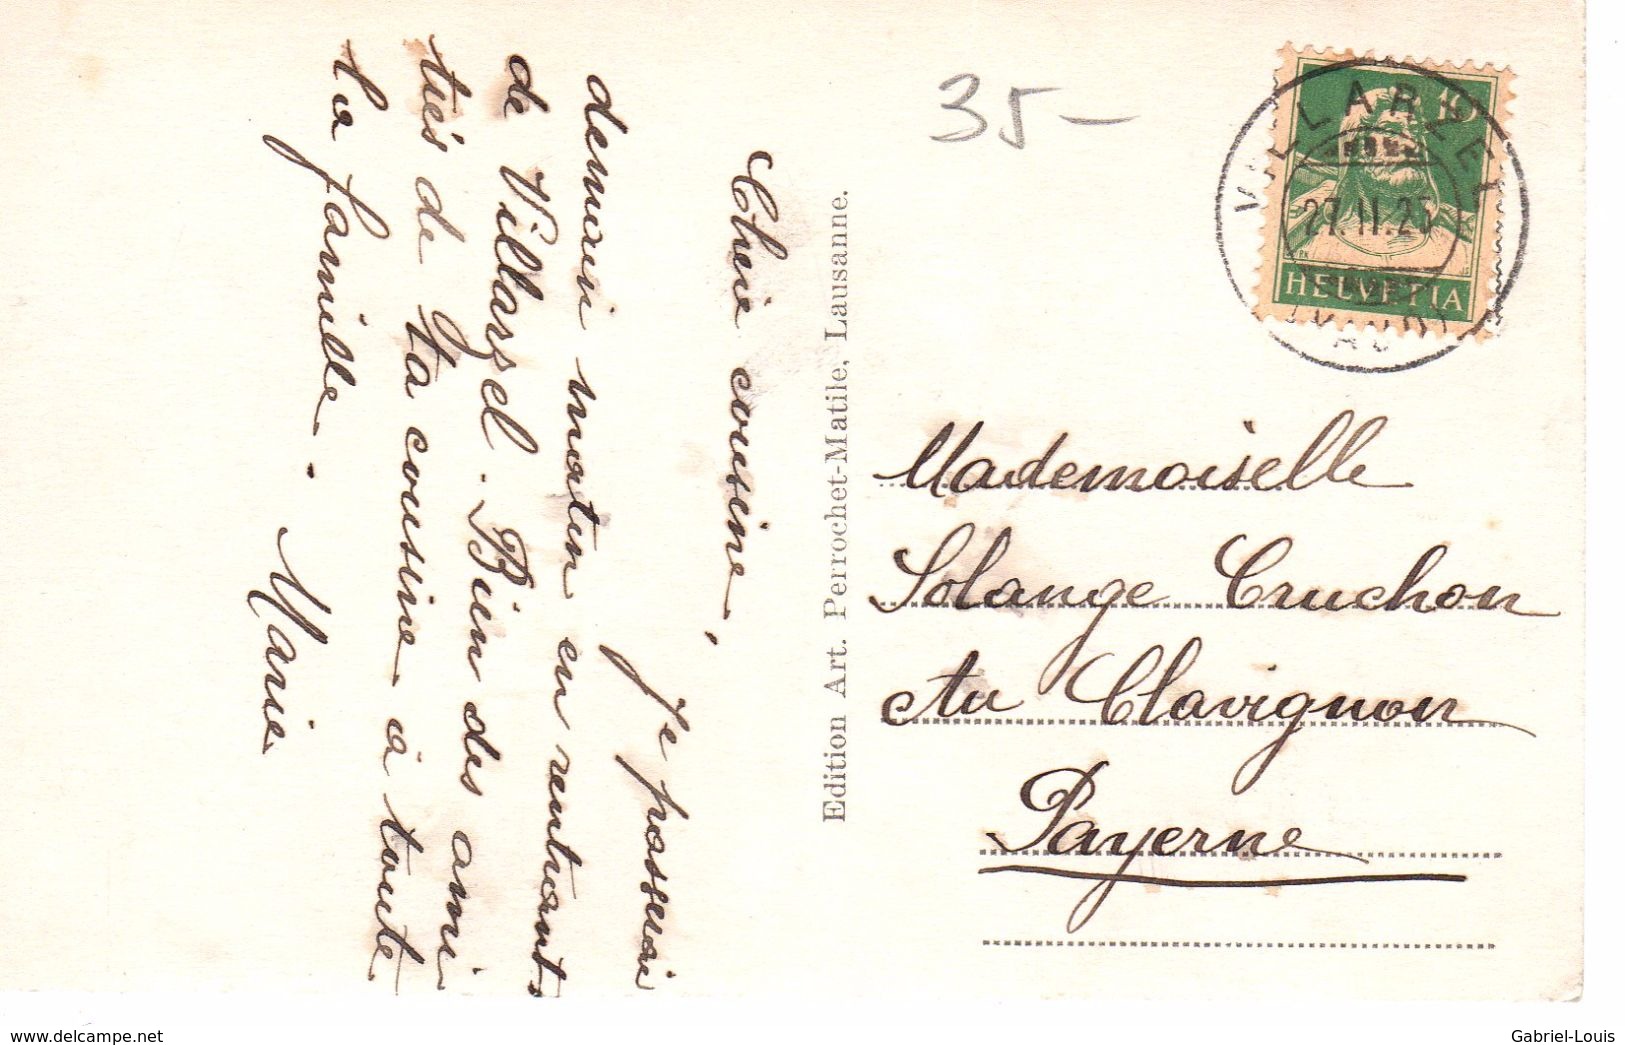 Chère cousine,
Je passerai
demain matin en rentrant
de Villarzel. Bien des ami
tiés de ta cousine à toute
ta famille.
Marie
Edition Art. Perrochet-Matile, Lausanne.
35-
10
HELVETIA
VILLARZEL
27.II.23
(VAUD)
Mademoiselle
Solange Cruchon
Au Clavignon
Payerne
www.delcampe.net
Gabriel-Louis